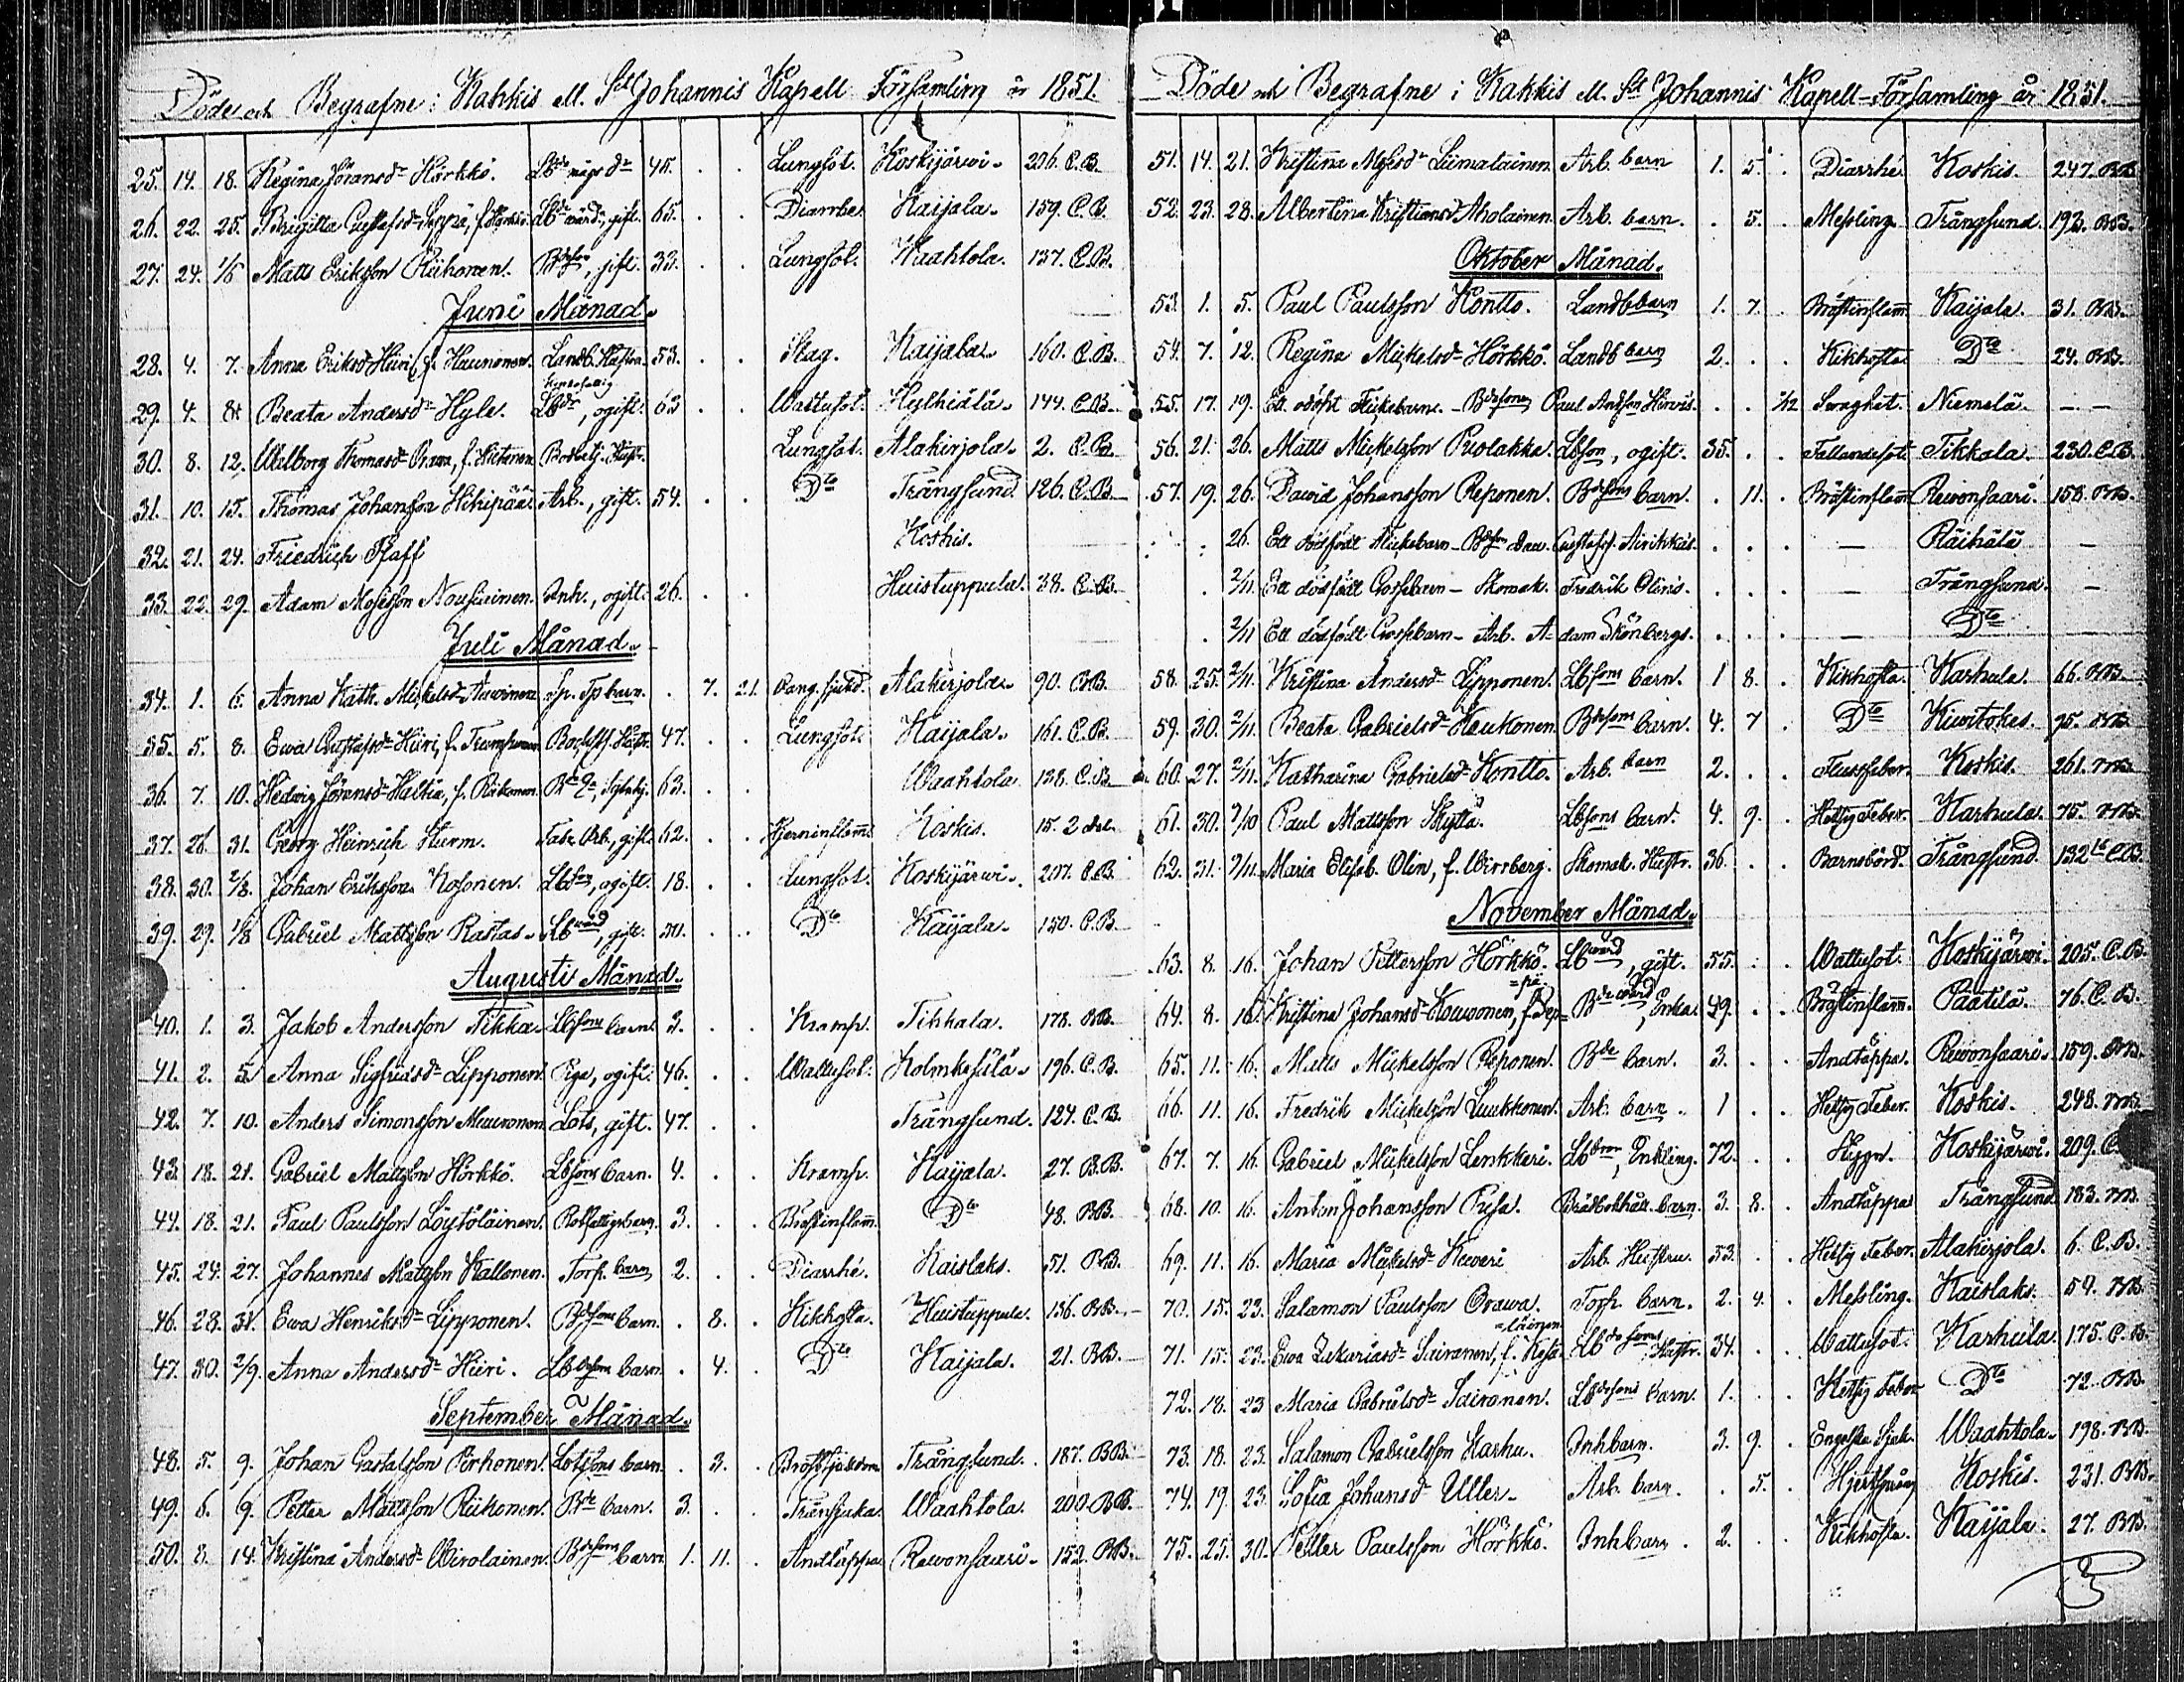 Döde och Begrafne i Kakkis ell. Sct Johannis Kapell Församling år 1851.
25. 14. 18. Regina Jöransd Hörkkö. 45. Lungsot. Koskijärwi. 206. C.B.
26. 22. 25. Brigitta Gustafsd gift. 65. Diarrhé Kaijala. 159. C.B.
27. 24. 1/6 Matts Eriksson Riihonen. gift. 33. Lungsot. Waahtola. 137. C.B.
Juni Månad.
28. 4. 7. Anna Eriksd Hiiri, f. Haunonen. Landb. Hustru. 53. Slag. Kaijala. 160. C.B.
29. 4. 8. Beata Andersd Hyle. ogift. 63 Wattusot. 144. C.B.
30. 8. 12. Walborg Thomasd Lungsot. Alakirjola. 2. C.B.
31. 10. 15. Thomas Johansson Hikipää. Arb., gift. 54. Dto Trångsund. 126. C.B.
32. 21. 24. Friedrich Pfaff Koskis.
33. 22. 29. Adam Mosesson Nousiainen. Inh., ogift. 26. Huistuppula. 38. C.B.
Juli Månad.
34. 1. 6. Anna Kath. Mickelsd barn. 7. 21. Alakirjola. 90. BB.
35. 5. 8. Ewa Gustafsd Hiiri, f. 47. Lungsot. Kaijala. 161. C.B.
36. 7. 10. Hedwig Jöransd Haltia, f. 63. Waahtola. 138. C.B.
37. 26. 31. Georg Heinrich Sturm. gift. 62. Hjerninflam. Koskis. 15. 2 del.
38. 30. 2/8. Johan Eriksson Kosonen. ogift. 18. Lungsot. Koskijärwi. 207. C.B.
39. 29. 1/8 Gabriel Mattsson Rastas. gift. 30. Dto Kaijala. 150. C.B.
Augusti Månad.
40. 1. 3. Jakob Andersson Tikka. Lbsons barn. 3. Kramp. Tikkala. 178. BB.
41. 2. 5. Anna Sigfridsd Lipponen. Piga, ogift. 46. Wattusot. 196. C.B.
42. 7. 10. Anders Simonsson Muuronen. Lots, gift. 47. Trångsund. 124. C.B.
43. 18. 21. Gabriel Mattsson Hörkkö. Lbsons barn. 4. Kramp. Kaijala. 27. B.B.
44. 18. 21. Paul Paulsson Löytöläinen. 3. Bröstinflam. Dto 48. BB.
45. 24. 27. Johannes Mattsson Kallonen. Torp. barn 2. Diarrhé. Kaislaks. 51. BB.
46. 28. 31. Ewa Henriksd Lipponen. Bdesons barn. 8. Kikhosta. Huistuppula. 136. BB.
47. 30. 2/9. Anna Andersd Hiiri. barn. 4. Dto Kaijala. 21. BB.
September Månad.
48. 5. 9. Johan Gustafsson Pirhonen. Lotssons barn. 3. Bröstsjukdom Trångsund. 187. BB.
49. 6. 9. Petter Mattsson Riihonen. Bde barn. 3. Waahtola. 200. BB.
50. 8. 14. Kristina Andersd Wirolainen. Bdesons barn 1. 11. Andtäppa Rewonsaari. 152. BB.
Döde och Begrafne i Kakkis ell. Sct Johannis Kapell-Församling år 1851.
51. 14. 21. Kristina Mosesd Liimatainen. Arb. barn 1. 5. Diarrhé. Koskis. 247. BB.
52. 23. 28. Albertina Kristiansd Aholainen. Arb. barn. 5. Messling. Trångsund. 193. BB.
Oktober Månad.
53. 1. 5. Paul Paulsson Kontto. Landb barn 1. 7. Bröstinflam. Kaijala. 31. BB.
54. 7. 12. Regina Mickelsd Hörkkö. Landb barn 2. Kikhosta. Dto 24. BB.
55. 17. 19. Ett odöpt Flickebarn. Bdesons Paul Andsson Hirwis. 1/12 Swaghet. Niemelä. — —
56. 21. 26. Matts Mickelsson Puolakka. Lbson, ogift. 35. Fallandesot. Tikkala. 230. C.B.
57. 19. 26. Dawid Johansson Reponen. Bdesons barn. 11. Bröstinflam Rewonsaari. 158. BB.
26. Ett dödfödt Flickebarn — Airikkas. — Päihälä —
2/11. Ett dödfödt Gossebarn — Skomak. Fredrik Olins. — Trångsund. —
2/11 Ett dödfödt Gossebarn — Arb. Adam Skönbergs. — Dto —
58. 25. 2/11. Kristina Andersd Lipponen. Lbsons barn. 1 8. Kikhosta. Karhula. 66. BB.
59. 30. 2/11. Beata Gabrielsd Haukonen. Bdesons barn. 4. 7. Dto 75. BB.
60. 27. 2/11. Katharina Gabrielsd Kontto. Arb. barn 2. Flussfeber. Koskis. 261. BB.
61. 30. Paul Mattsson Skyttä. Lbsons barn. 4. 9. Hettsig Feber. Karhula. 75. BB.
62. 31. 2/11. Maria Elisab. Olin, f. Wirrberg. Skomak. Hustr. 36. Barnsbörd. Trångsund. 132 C.B.
November Månad.
63. 8. 16. Johan Pettersson Hörkkö. gift. 55. Wattusot. Koskijärwi. 205. C.B.
64. 8. 16. Kristina Johansd Kouwonen, Enka. 49. Bröstinflam. Päätilä. 76. C.B.
65. 11. 16. Matts Mickelsson Reponen. Bde barn. 3. Andtäppa. Rewonsaari. 159. BB.
66. 11. 16. Fredrik Mickelsson Luukkonen. Arb. barn. 1 Hettsig Feber. Koskis. 248. BB.
67. 7. 16. Gabriel Mickelsson Lenkkeri. Enkling. 72. Koskijärwi. 209. C.
68. 10. 16. Anton Johansson Pusa. barn. 3. 8. Andtäppa Trångsund. 183. BB.
69. 11. 16. Maria Mickelsd Arb. Hustru. 33. Hettsig Feber. Alakirjola. 6. C.B.
70. 15. 23. Salamon Paulsson Orawa. Torp. barn. 2. 4. Messling. Kaislaks. 54. BB.
71. 15. 23. Ewa Zakariasd Sairanen, f. Hustr. 34. Wattusot. Karhula. 175. C.B.
72. 18. 23 Maria Gabrielsd Sairanen. barn. 1. Hettsig Feber Dto 72. BB.
73. 18. 23. Salamon Gabrielsson Karhu. Inhbarn. 3. 9. Engelska Sjuk. Waahtola. 198. BB.
74. 19. 23. Sofia Johansd Uller. Arb. barn. 5. Koskis. 231. BB.
75. 25. 30. Petter Paulsson Hörkkö. Inhbarn. 2. Kikhosta. Kaijala. 27. BB.